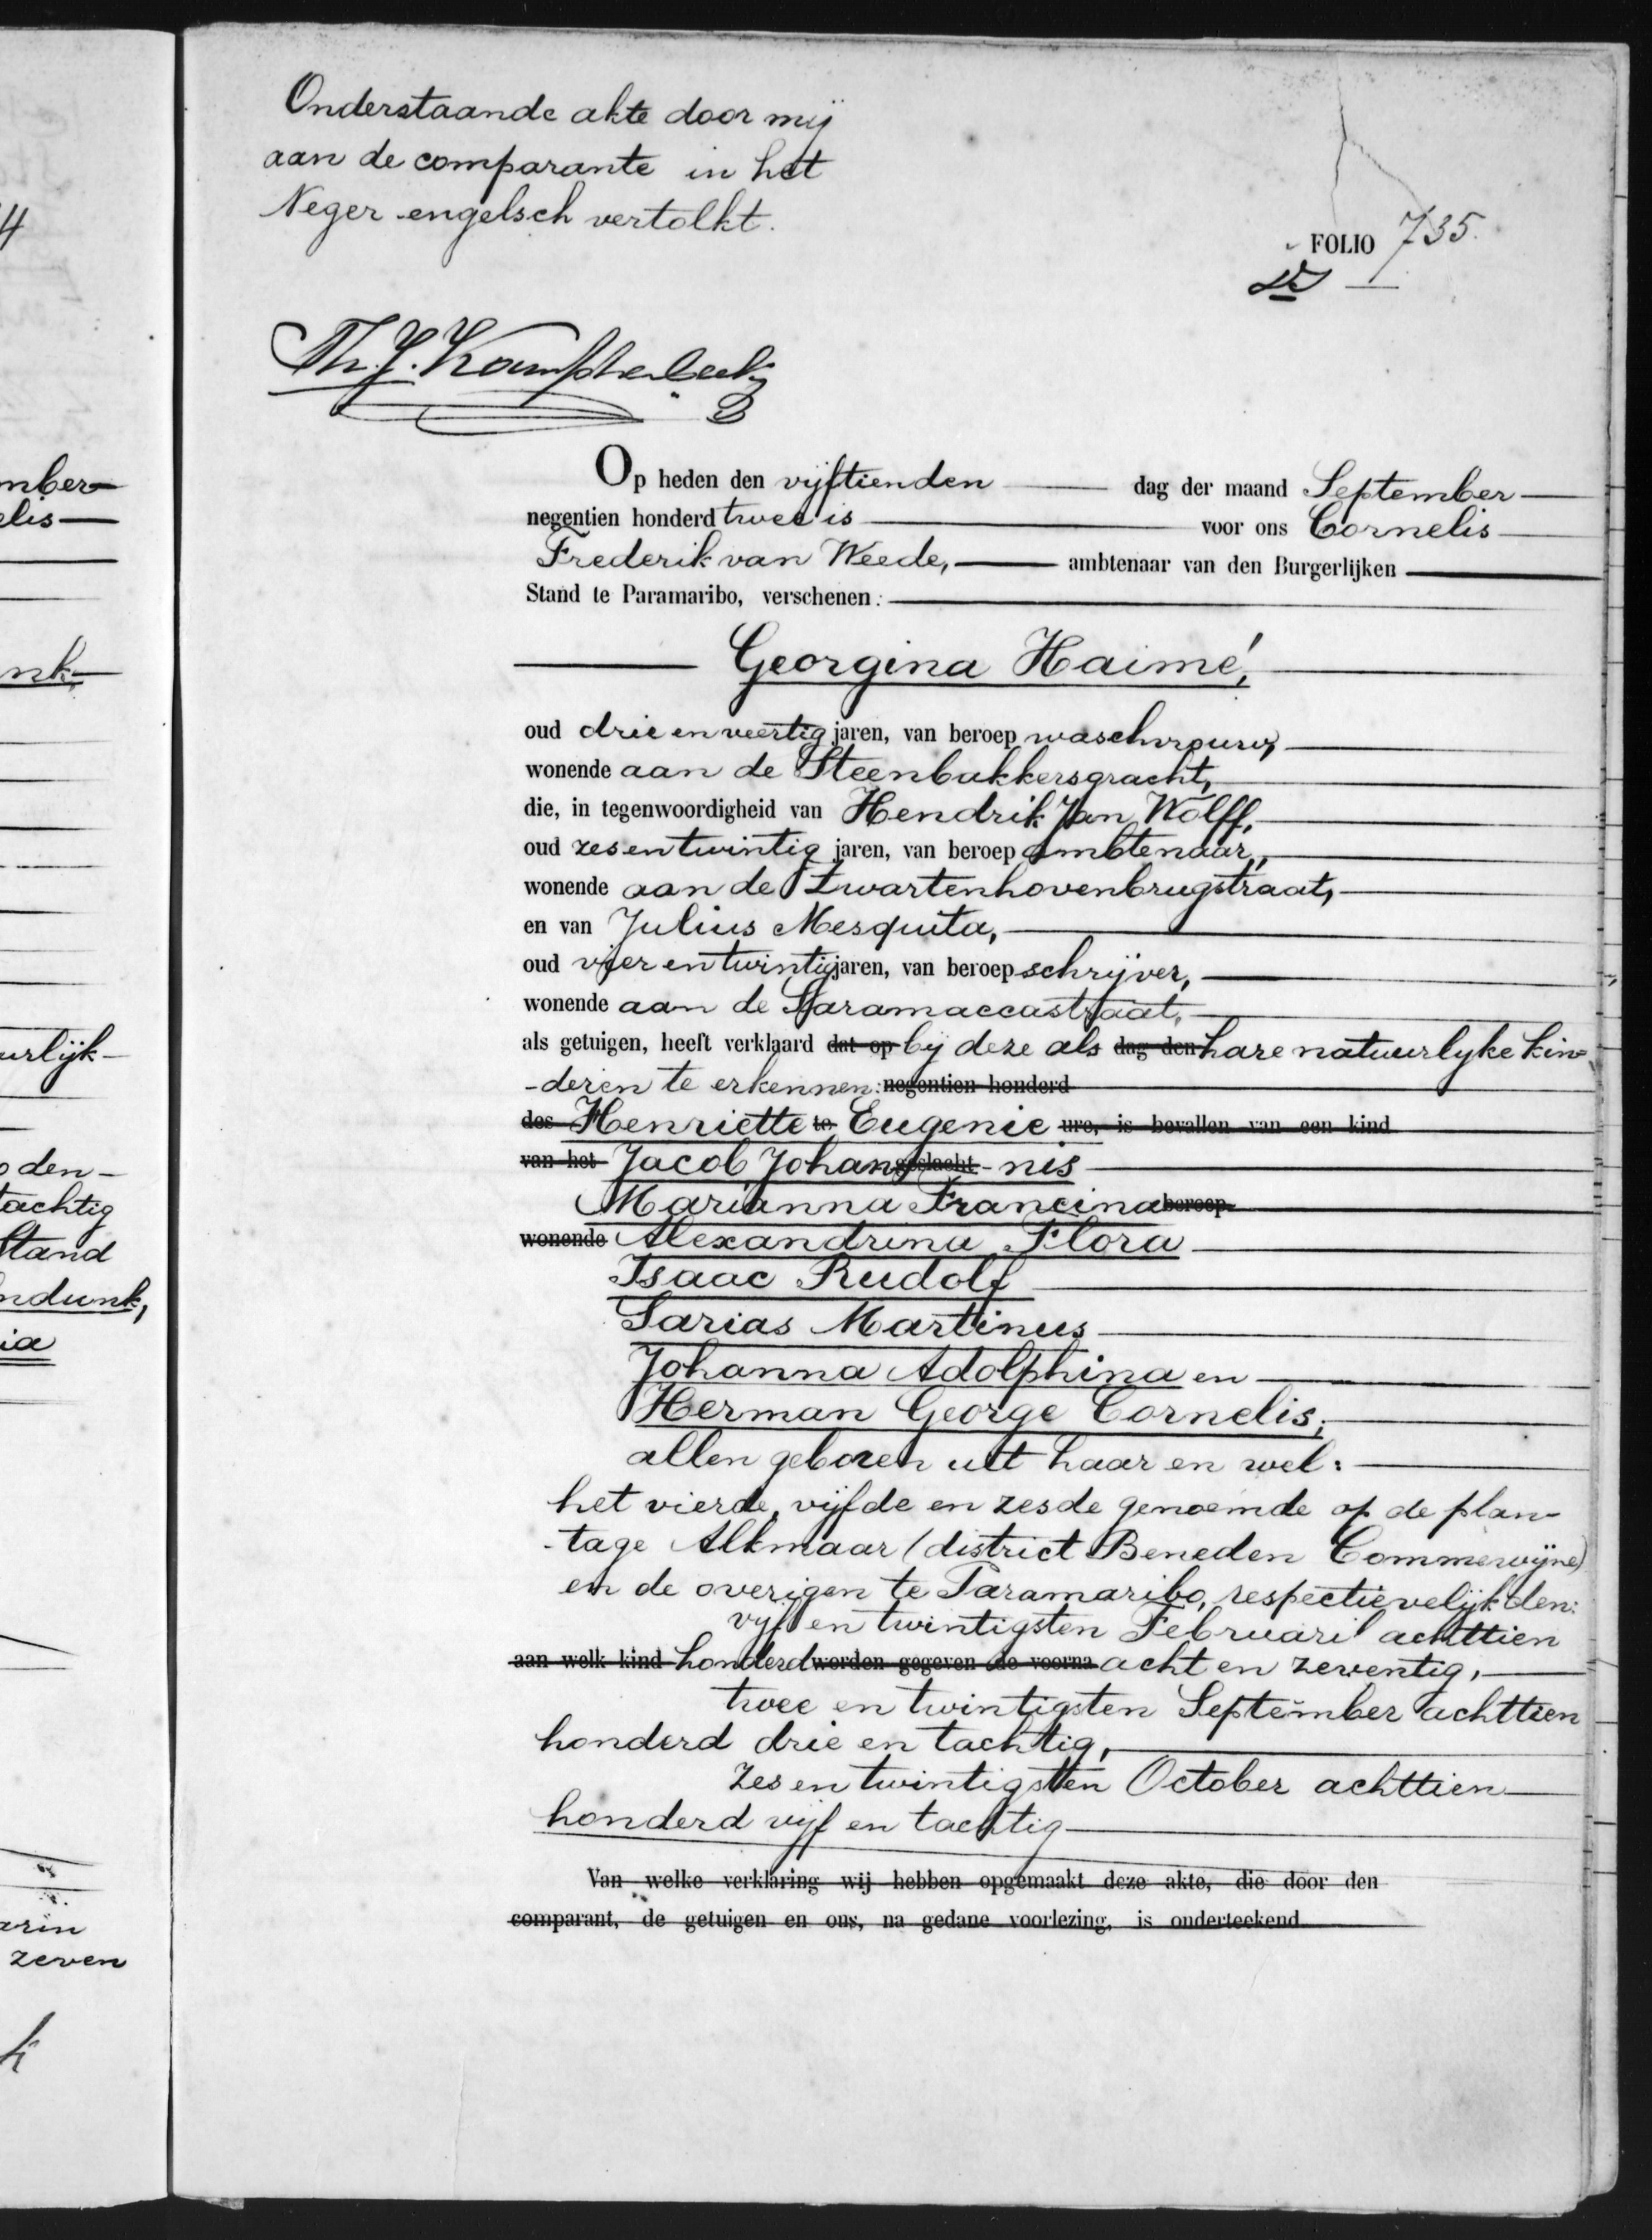 Onderstaande akte door mij
aan de comparante in het
Neger-engelsch vertolkt.
FOLIO 735.
Op heden den vijftienden dag der maand September
negentien honderd twee is voor ons Cornelis
Frederik van Weede, ambtenaar van den Burgerlijken
Stand te Paramaribo, verschenen:
Georgina Haimé,
oud drie en veertig jaren, van beroep waschvrouw,
wonende aan de Steenbakkersgracht,
die, in tegenwoordigheid van Hendrik Jan Wolff,
oud zes en twintig jaren, van beroep ambtenaar,
wonende aan de Zwartenhovenbrugstraat,
en van Julius Mesquita,
oud vier en twintig jaren, van beroep schrijver,
wonende aan de Saramaccastraat,
als getuigen, heeft verklaard dat op bij deze als dag den hare natuurlyke kin-
-deren te erkennen: negentien honderd
des Henriette te Eugenie ure, is bevallen van een kind
van het Jacob Johan geslacht -nis
Marianna Francina beroep
wonende Alexandrina Flora
Isaac Rudolf
Sarias Martinus
Johanna Adolphina en
Herman George Cornelis;
allen geboren uit haar en wel:
het vierde, vijfde en zesde genoemde op de plan-
-tage Alkmaar (district Beneden Commewijne)
en de overigen te Paramaribo, respectievelijk den:
vijf en twintigsten Februari achttien
aan welk kind honderd worden gegeven de voorna acht en zeventig,
twee en twintigsten September achttien
honderd drie en tachtig,
zes en twintigsten October achttien
honderd vijf en tachtig
Van welke verklaring wij hebben opgemaakt deze akte, die door den
comparant, de getuigen en ons, na gedane voorlezing, is onderteekend
mber
elis
nk
urlijk
den
tachtig
Stand
ndunk,
ia
arin
zeven